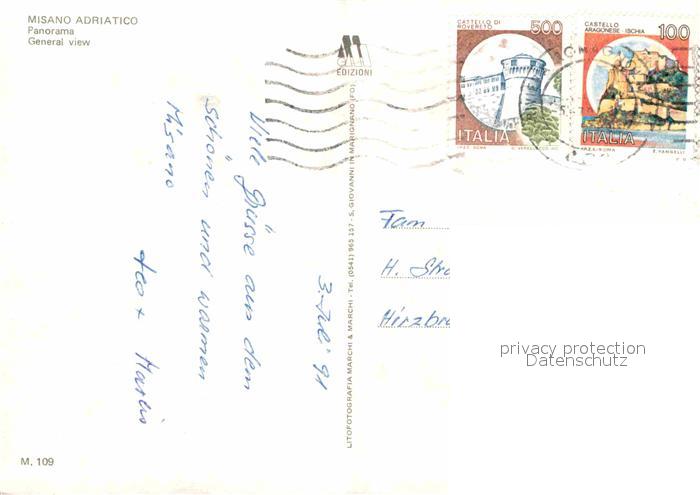 MISANO ADRIATICO
Panorama
General view
EDIZIONI
CASTELLO DI
ROVERETO
500
ITALIA
CASTELLO
ARAGONESE ISCHIA
100
ITALIA
3. Juli 91
Viele Grüsse aus dem
schönen und warmen
Misano
LITOFOTOGRAFIA MARCHI & MARCHI - Tel. (0541) 965 157 - S. GIOVANNI IN MARIGNANO (FO)
Fam
H. Stra
Hirzbr
privacy protection
Datenschutz
M. 109